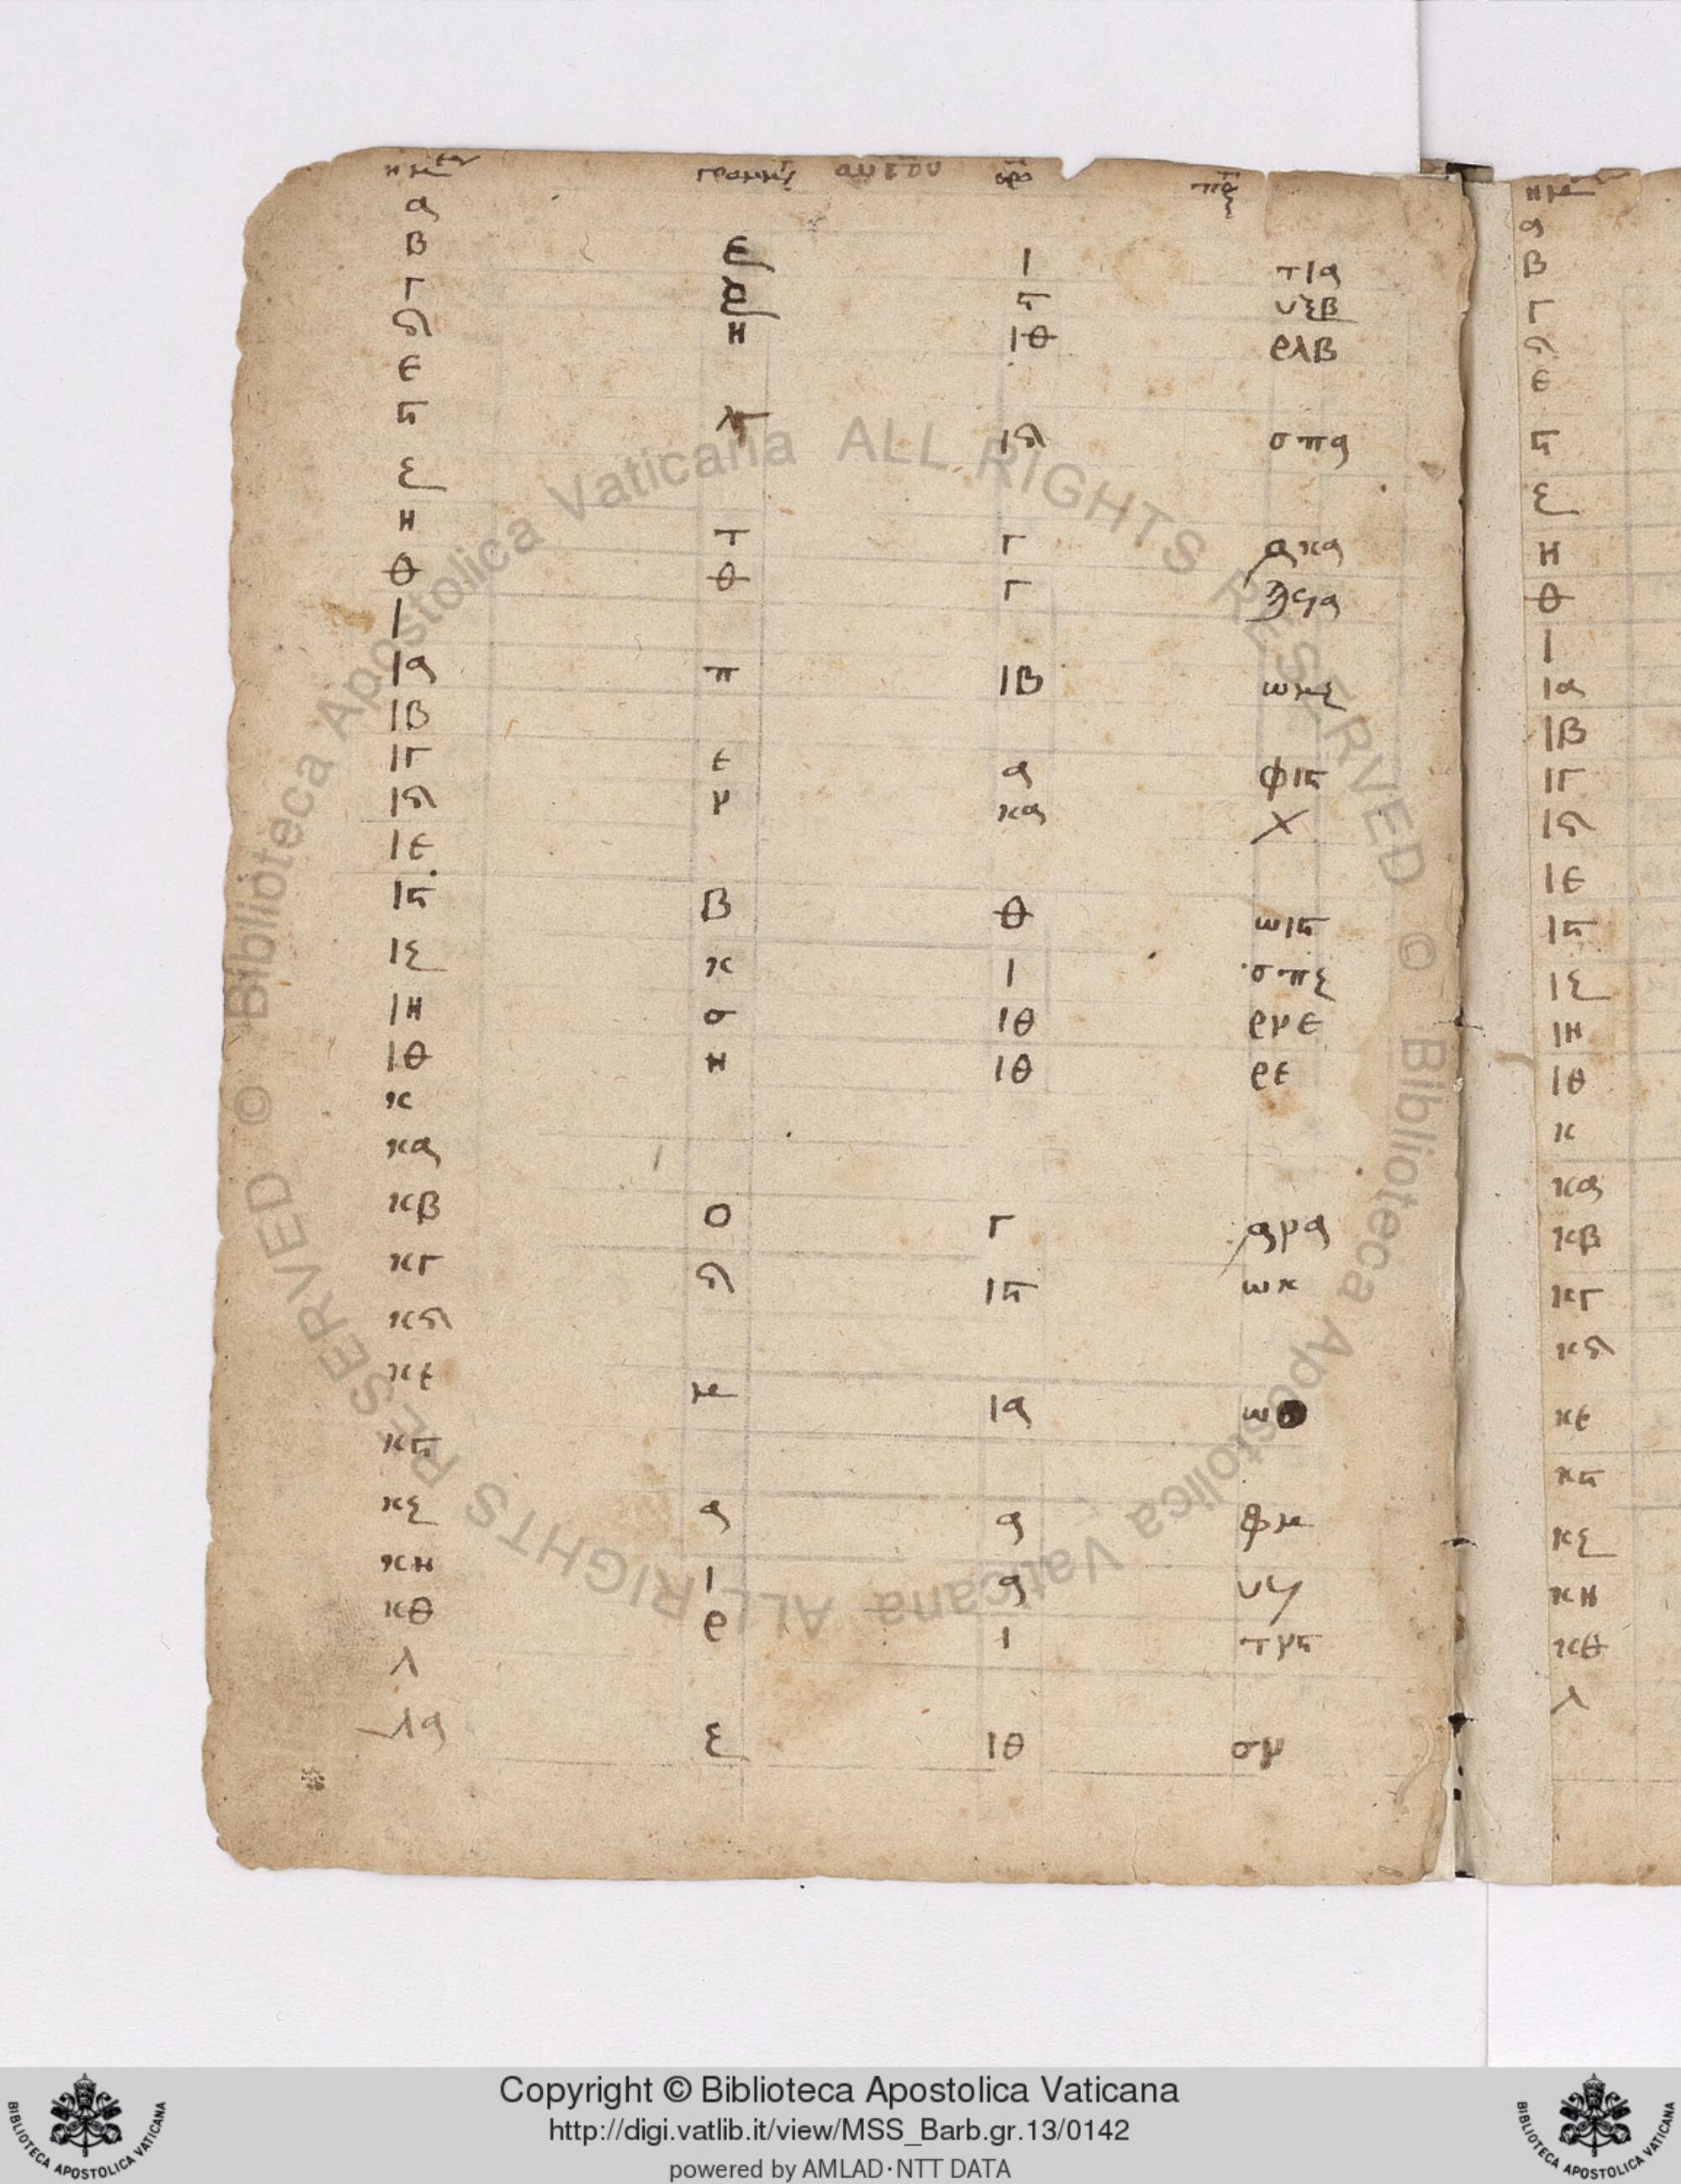 α
β ε ι τια
γ α ϛ υξβ
δ η ιθ ρλβ
ε
ϛ ιδ σπα
ζ
η τ γ ακα
θ θ γ ϡϟα
ι
ια π ιβ ωμζ
ιβ
ιγ ε α φιϛ
ιδ ν κα χ
ιε
ιϛ β θ ωιϛ
ιζ κ ι σπζ
ιη σ ιθ ρνε
ιθ η ιθ ρε
κ
κα
κβ ο γ ανα
κγ δ ιϛ ωκ
κδ
κε μ ια ω
κϛ
κζ α α φμ
κη ι α υϟ
κθ ρ ι τνϛ
λ
λα ζ ιθ σν
α
β
γ
δ
ε
ϛ
ζ
η
θ
ι
ια
ιβ
ιγ
ιδ
ιε
ιϛ
ιζ
ιη
ιθ
κ
κα
κβ
κγ
κδ
κε
κϛ
κζ
κη
κθ
λ
© Biblioteca Apostolica Vaticana ALL RIGHTS RESERVED © Biblioteca Apostolica Vaticana ALL RIGHTS RESERVED
Copyright © Biblioteca Apostolica Vaticana
http://digi.vatlib.it/view/MSS_Barb.gr.13/0142
powered by AMLAD·NTT DATA
BIBLIOTECA APOSTOLICA VATICANA
BIBLIOTECA APOSTOLICA VATICANA